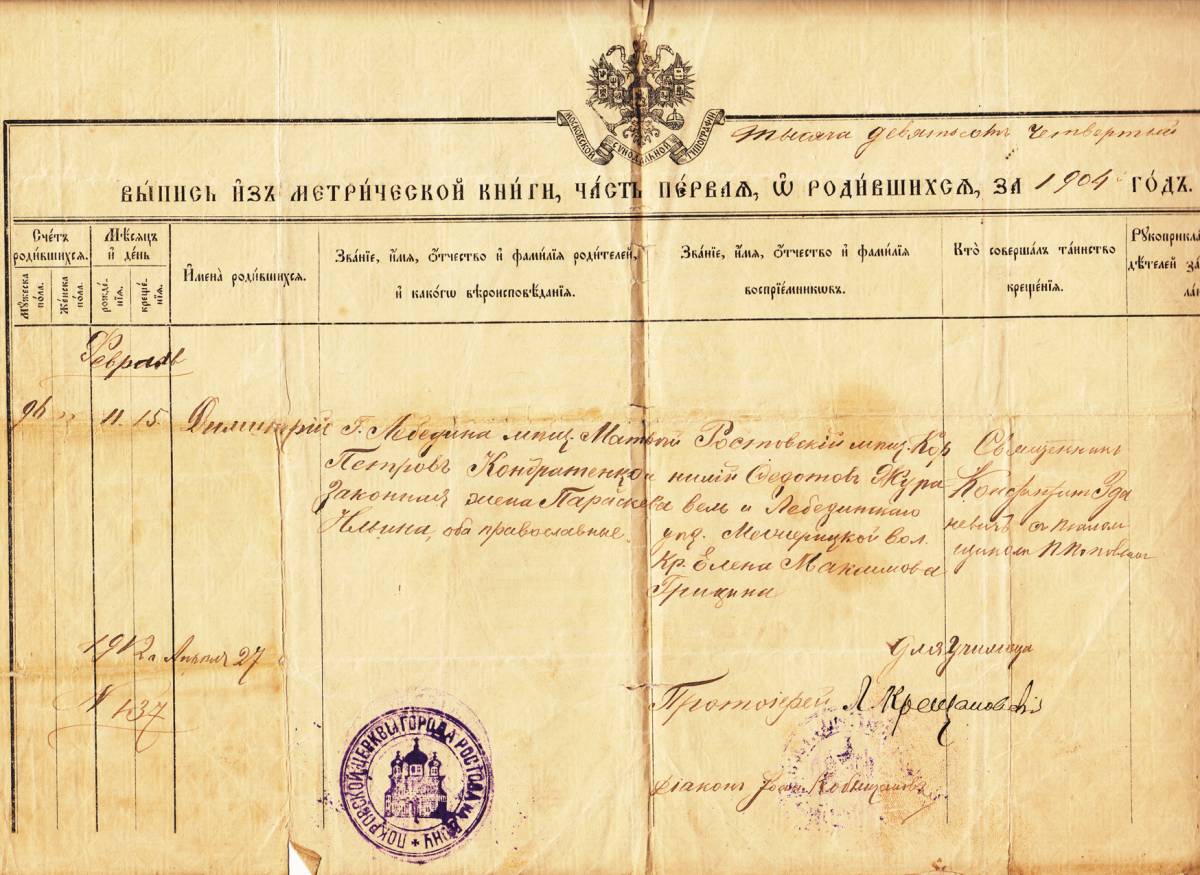 МОСКОВСКОЙ СѴНОДАЛЬНОЙ ТИПОГРАФІИ
тысяча девятьсотъ четвертый
ВЫ́ПИСЬ И҆ЗЪ МЕТРИ́ЧЕСКОЙ КНИ́ГИ, ЧА́СТЬ ПЕ́РВАЯ, Ѽ РОДИ́ВШИХСЯ, ЗА 1904 ГО́ДЪ.
Сче́тъ роди́вшихся.
Мꙋ́жеска по́ла.
Же́нска по́ла.
Мѣ́сяцъ и҆ де́нь
рожде́нїя.
креще́нїя.
И҆мена̀ роди́вшихся.
Зва́нїе, и҆́мя, ѻ҆́тчество и҆ фами́лїа роди́телей,
и҆ како́гѡ вѣроисповѣ́данїя.
Зва́нїе, и҆́мя, ѻ҆́тчество и҆ фами́лїа
воспрїе́мникѡвъ.
Кто̀ соверша́лъ та́инство
креще́нїя.
Рꙋкоприкла
дѣ́телей за
ла́н
Февраль
96 " 11. 15. Димитрій
Г. Лебедина мѣщ. Матвѣй
Петровъ Кондратенко и
законная жена Параскева
Ильина, оба православные.
Ростовскій мѣщ. Кор
нилій Федотовъ Жура
вель и Лебединскаго
уѣз. Межирицкой вол.
Кр. Елена Максимова
Грицина
Священникъ
Константинъ Зда
невичъ съ псалом
щикомъ
1912 г. Апрѣля 27
N 437
Для училища
Протоіерей Л. Крещановскій
Діаконъ
ПОКРОВСКОЙ ЦЕРКВЫ ГОРОДА РОСТОВА НА ДОНУ